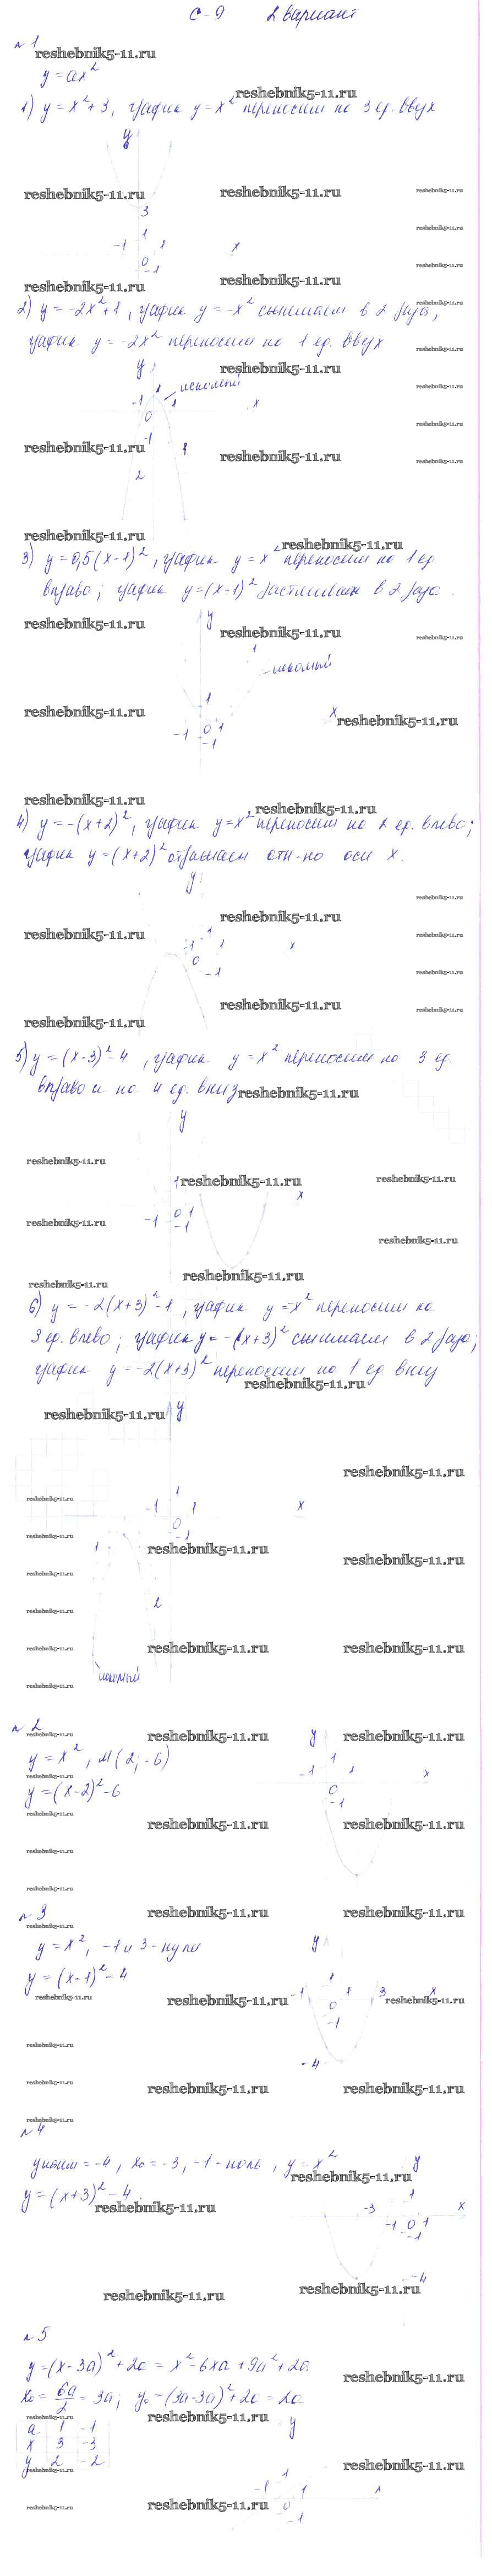 С-9 2 вариант
№1
reshebnik5-11.ru
y=ax²
reshebnik5-11.ru
1) y=x²+3, график y=x² переносим на 3 ед. вверх
y
reshebnik5-11.ru reshebnik5-11.ru reshebnik5-11.ru
3
reshebnik5-11.ru
1
-1 1 x
0
-1
reshebnik5-11.ru reshebnik5-11.ru
2) y=-2x²+1, график y=-x² сжимаем в 2 раза,
график y=-2x² переносим на 1 ед. вверх
y reshebnik5-11.ru
искомый
-1 1 x
0
-1
reshebnik5-11.ru 1 reshebnik5-11.ru
2
reshebnik5-11.ru reshebnik5-11.ru
3) y=0,5(x-1)², график y=x² переносим на 1 ед
вправо; график y=(x-1)² растягиваем в 2 раза.
reshebnik5-11.ru y reshebnik5-11.ru
1
искомый
1
reshebnik5-11.ru x reshebnik5-11.ru
-1 0 1
-1
reshebnik5-11.ru reshebnik5-11.ru
4) y=-(x+2)², график y=x² переносим на 2 ед. влево;
график y=(x+2)² отражаем отн-но оси x.
y
reshebnik5-11.ru reshebnik5-11.ru
1
-1 1 x
0
-1
reshebnik5-11.ru reshebnik5-11.ru
5) y=(x-3)²-4, график y=x² переносим на 3 ед.
вправо и на 4 ед. вниз
reshebnik5-11.ru
y
reshebnik5-11.ru
1 reshebnik5-11.ru reshebnik5-11.ru
x
reshebnik5-11.ru -1 0 1
-1
reshebnik5-11.ru
reshebnik5-11.ru reshebnik5-11.ru
6) y=-2(x+3)²-1, график y=-x² переносим на
3 ед. влево; график y=-(x+3)² сжимаем в 2 раза;
график y=-2(x+3)² переносим на 1 ед. вниз
reshebnik5-11.ru
reshebnik5-11.ru y
reshebnik5-11.ru
1
-1 1 x
0
-1
1 reshebnik5-11.ru reshebnik5-11.ru
2
reshebnik5-11.ru reshebnik5-11.ru
искомый
№2
reshebnik5-11.ru reshebnik5-11.ru y reshebnik5-11.ru
y=x², M(2;-6)
1
-1 1 x
y=(x-2)²-6
0
-1
reshebnik5-11.ru reshebnik5-11.ru
№3
reshebnik5-11.ru reshebnik5-11.ru
y=x², -1 и 3 - нули
y
y=(x-1)²-4
1
-1 1 3 x
reshebnik5-11.ru reshebnik5-11.ru 0 reshebnik5-11.ru
-1
-4
reshebnik5-11.ru reshebnik5-11.ru
№4
yнаим=-4, x₀=-3, -1-ноль, y=x²
y
reshebnik5-11.ru
y=(x+3)²-4
reshebnik5-11.ru
1
-3 x
-1 0 1
-1
-4
reshebnik5-11.ru reshebnik5-11.ru
№5
y=(x-3a)²+2a=x²-6xa+9a²+2a
reshebnik5-11.ru
x₀=6a/2=3a; y₀=(3a-3a)²+2a=2a
reshebnik5-11.ru reshebnik5-11.ru
a 1 -1
x 3 -3
y 2 -2
y
reshebnik5-11.ru reshebnik5-11.ru
1
-1 1 x
reshebnik5-11.ru reshebnik5-11.ru 0
-1